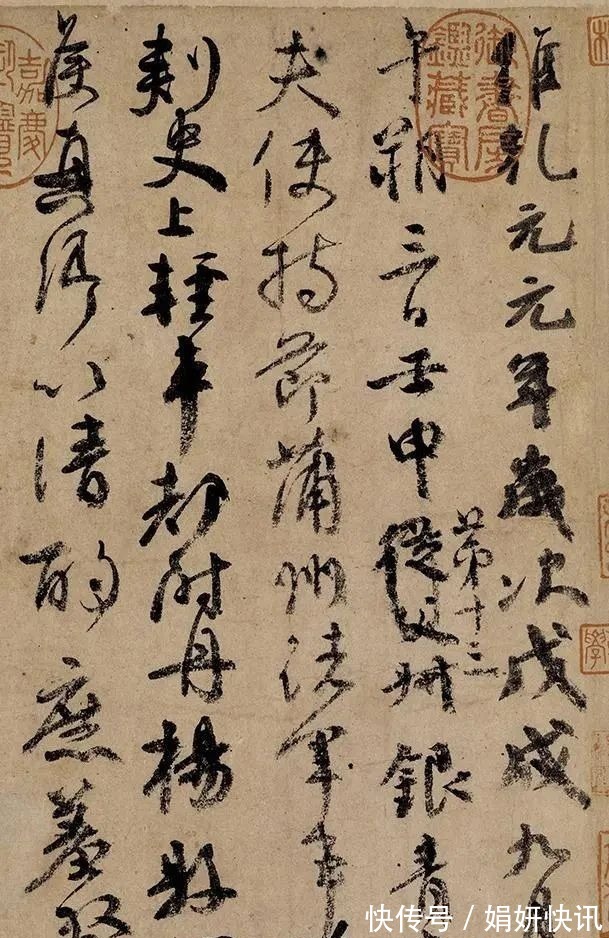 維乾元元年歲次戊戌九月
午朔三日壬申第十三從父銀青
夫使持節蒲州諸軍事
刺史上輕車都尉丹楊縣
侯真卿以清酌庶羞
御書房鑑藏寶
嘉慶
學
快传号 / 娟妍快讯